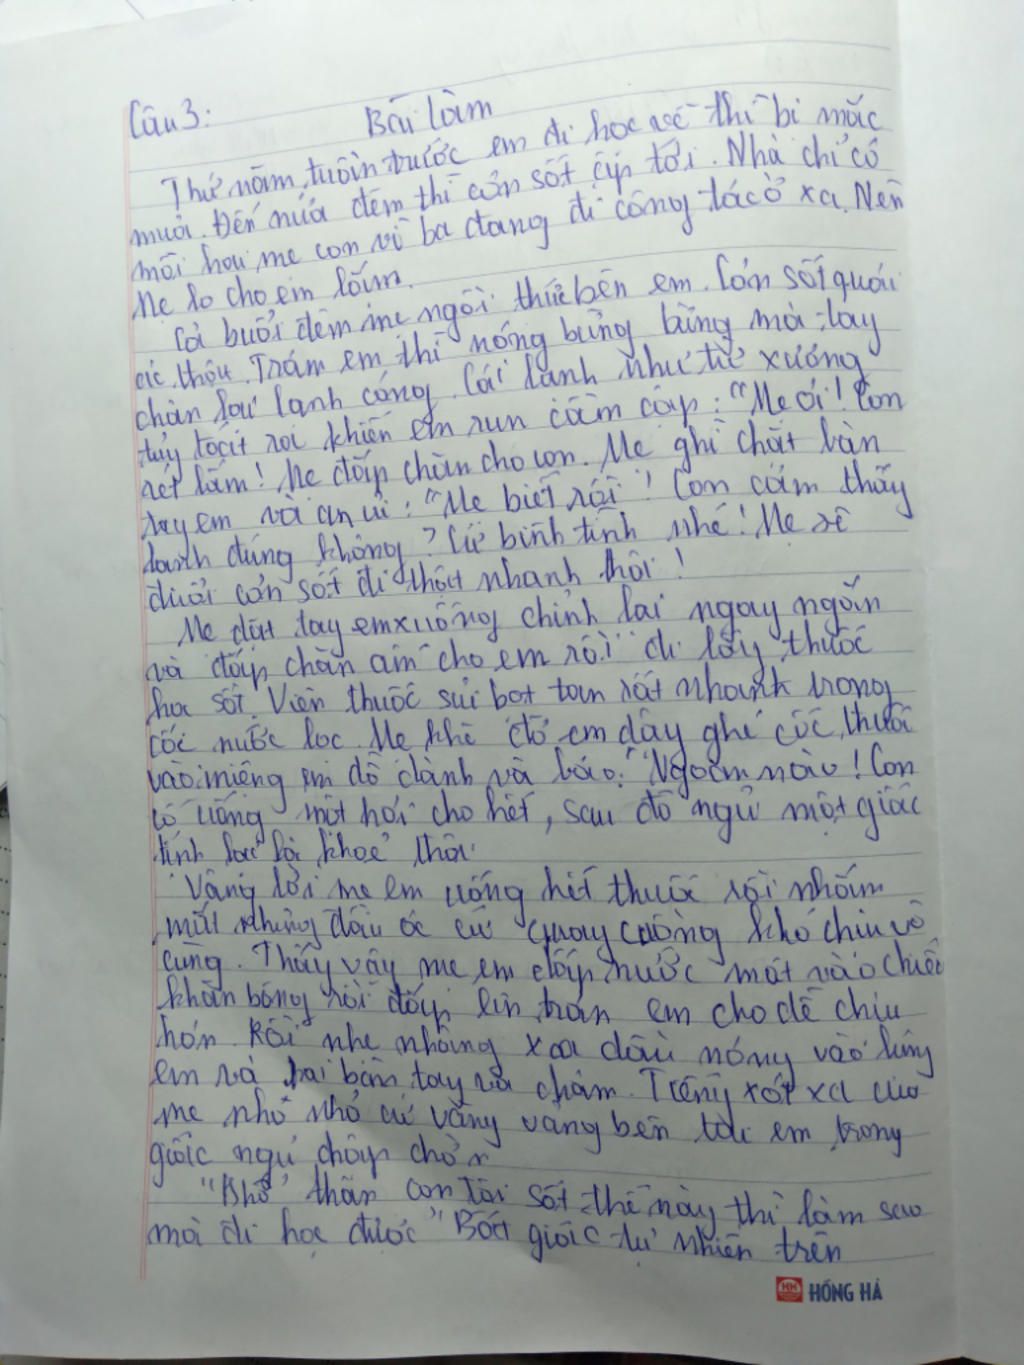 Câu 3:
Bài làm
Thứ năm, tuần trước em đi học về thì bị mắc
mưa. Đến nửa đêm thì cơn sốt ập tới. Nhà chỉ có
mỗi hai mẹ con vì ba đang đi công tác ở xa. Nên
Mẹ lo cho em lắm.
Cả buổi đêm mẹ ngồi thức bên em. Cơn sốt quái
ác thật. Trán em thì nóng bừng bừng mà tay
chân lại lạnh cóng. Cái lạnh như từ xương
tủy toát ra khiến em run cầm cập: "Mẹ ơi! Con
rét lắm! Mẹ đắp chăn cho con. Mẹ ghì chặt bàn
tay em và an ủi: "Mẹ biết rồi! Con cảm thấy
lạnh đúng không? Cứ bình tĩnh nhé! Mẹ sẽ
đuổi cơn sốt đi thật nhanh thôi!
Mẹ đặt tay em xuống chỉnh lại ngay ngắn
và đắp chăn ấm cho em rồi đi lấy thuốc
hạ sốt. Viên thuốc sủi bọt tan rất nhanh trong
cốc nước lọc. Mẹ khẽ đỡ em dậy ghé cốc thuốc
vào miệng em dỗ dành và bảo: "Ngoan nào! Con
cố uống một hơi cho hết, sau đó ngủ một giấc
tỉnh lại là khoẻ thôi.
Vâng lời mẹ em uống hết thuốc rồi nhắm
mắt nhưng đầu óc cứ quay cuồng khó chịu vô
cùng. Thấy vậy mẹ em đắp nước mát vào chiếc
khăn bông rồi đắp lên trán em cho dễ chịu
hơn. Rồi nhẹ nhàng xoa dầu nóng vào lưng
em và hai bàn tay và chân. Tiếng xót xa của
mẹ nho nhỏ cứ văng vẳng bên tai em trong
giấc ngủ chập chờn
"Khổ thân con tôi sốt thế này thì làm sao
mà đi học được" Bất giác tự nhiên trên
HH HỒNG HÀ